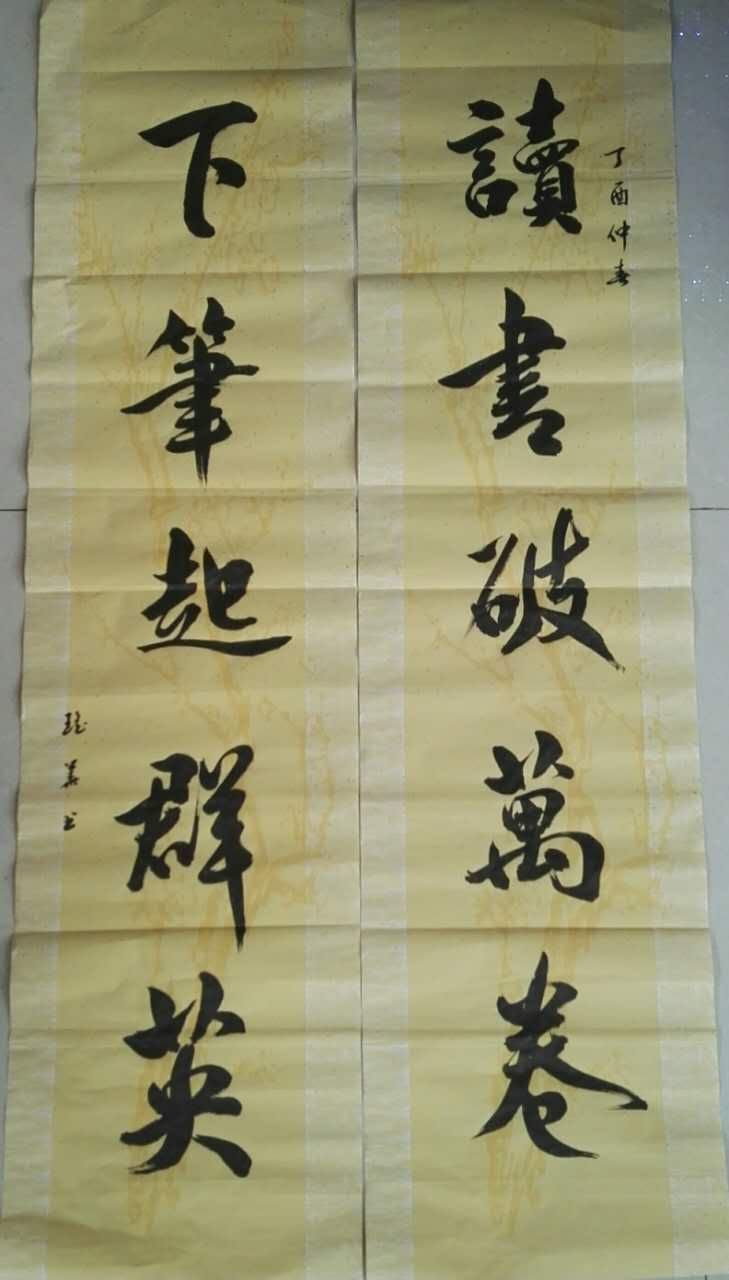 丁酉仲春
讀書破萬卷
下筆起群英